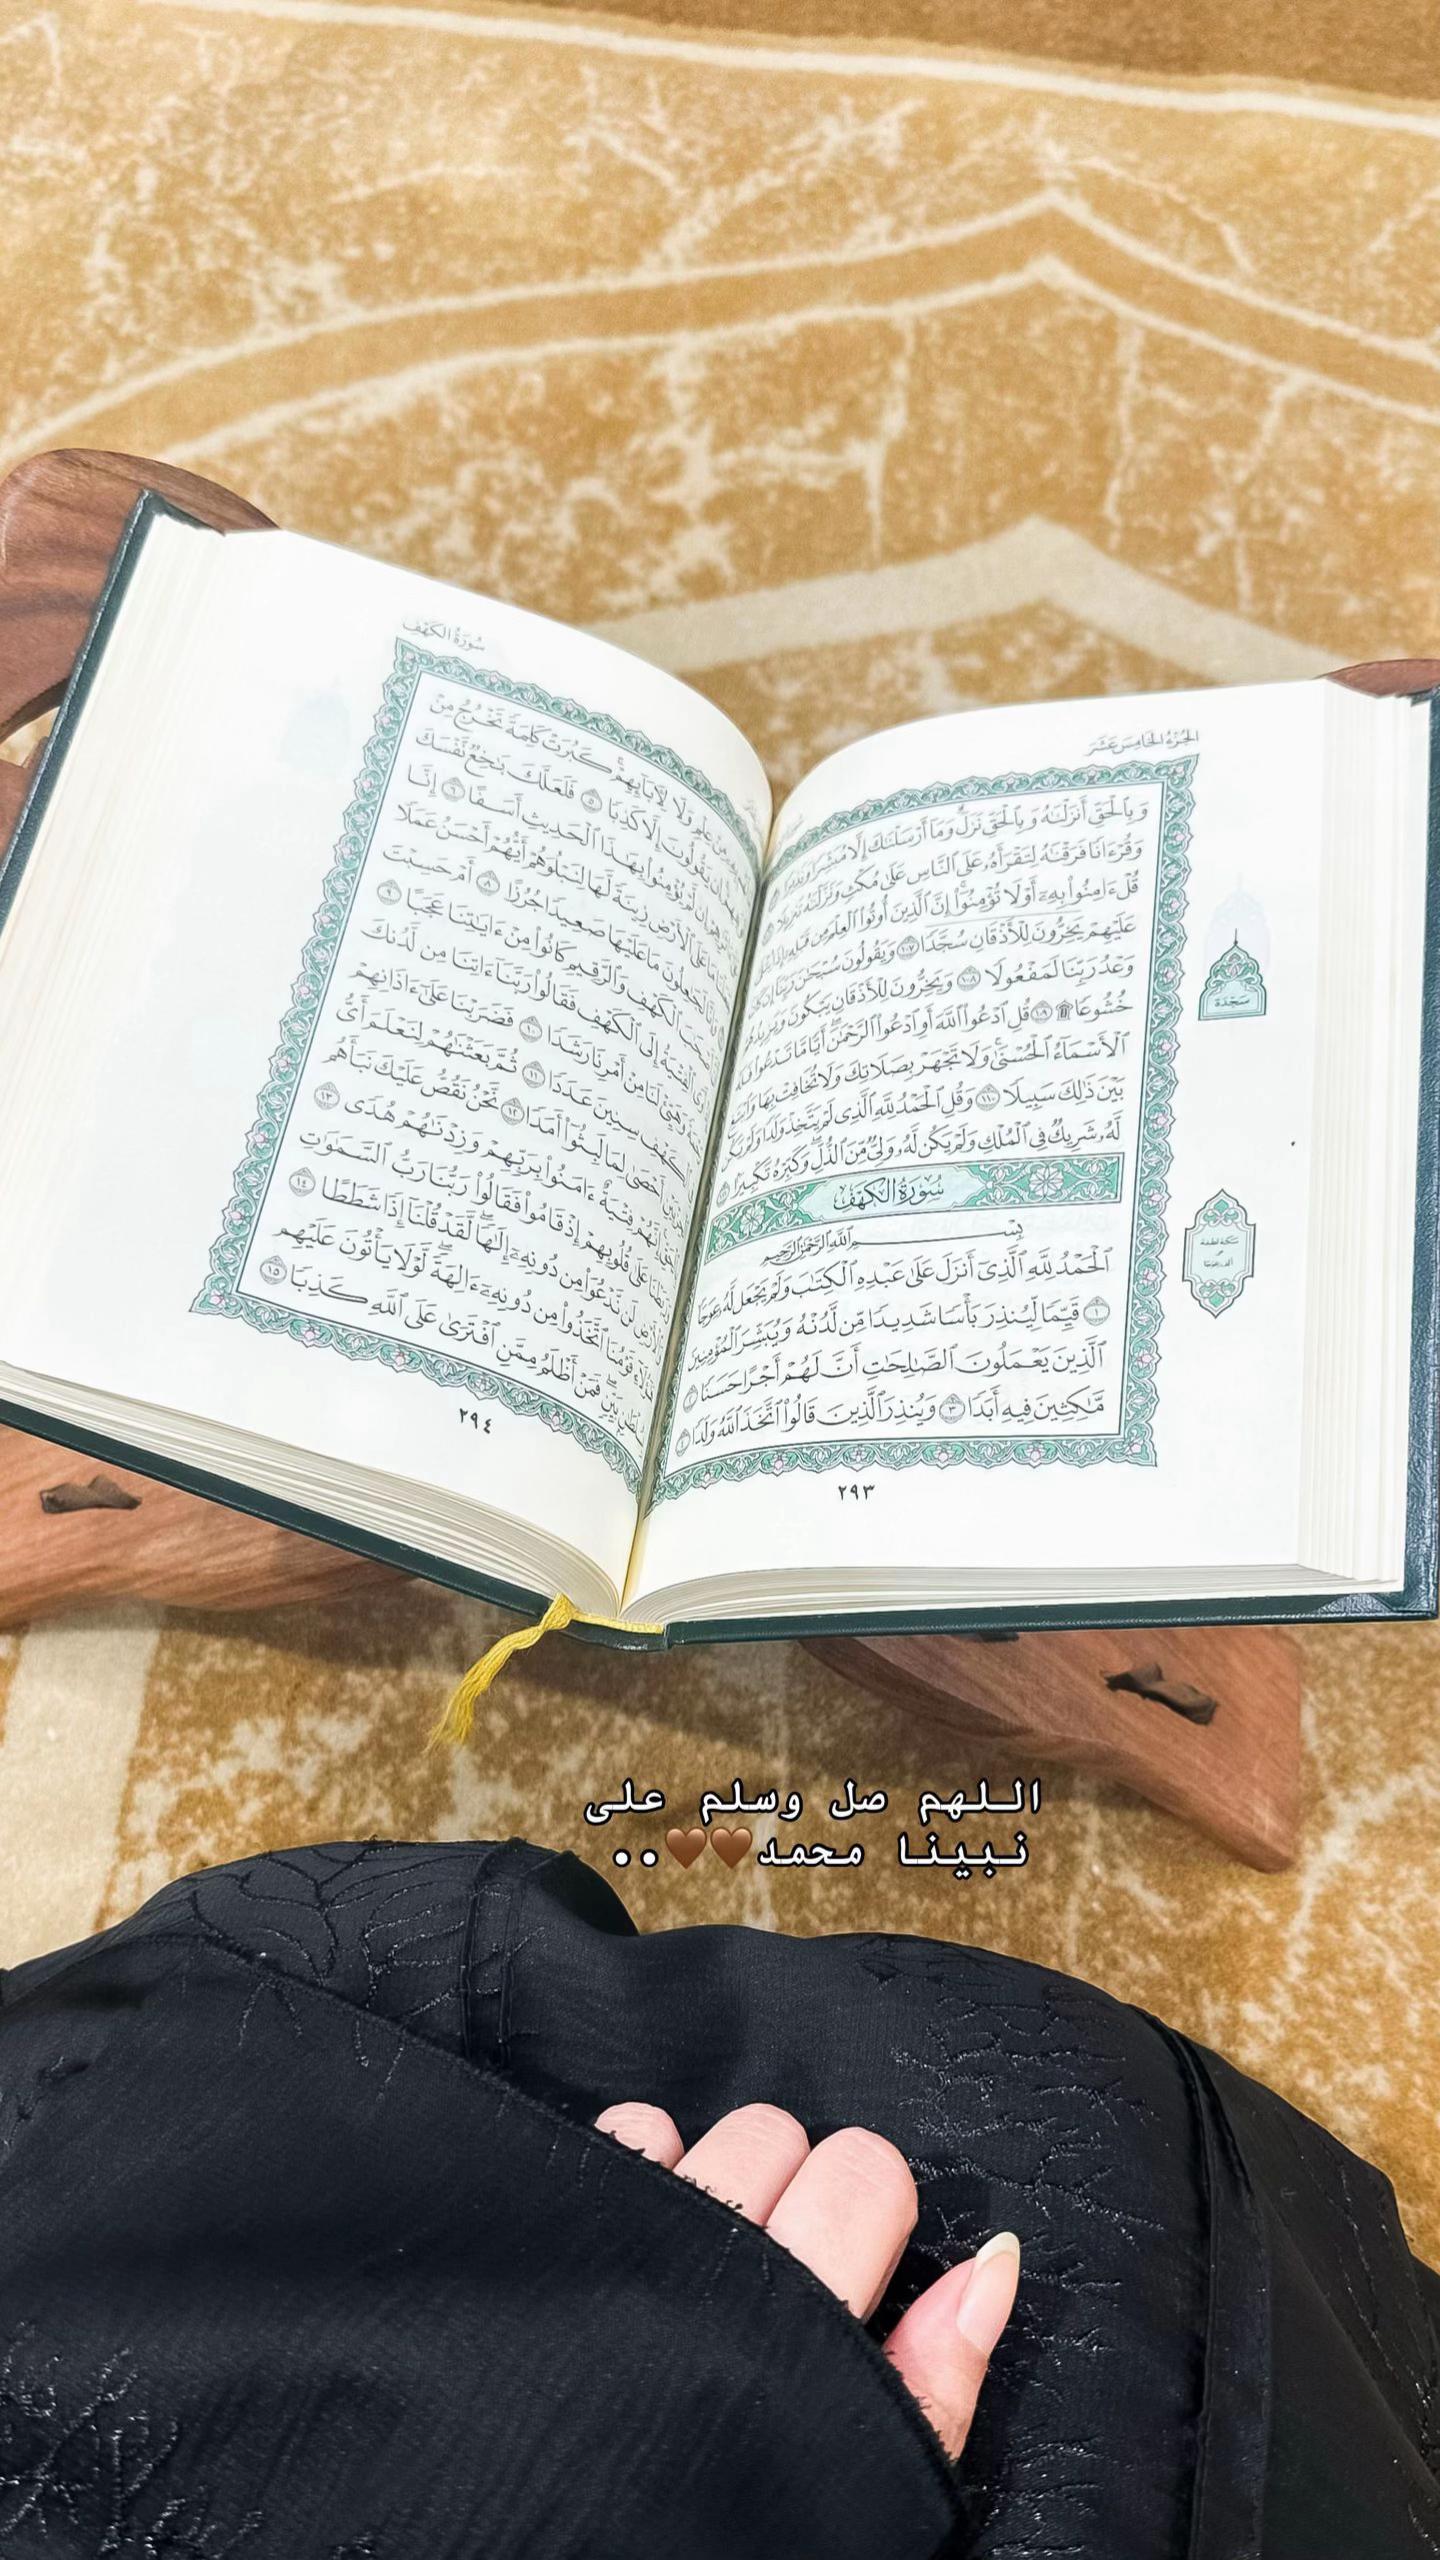 الجزء الخامس عشر
وَبِٱلْحَقِّ أَنزَلْنَٰهُ وَبِٱلْحَقِّ نَزَلَ وَمَآ أَرْسَلْنَٰكَ إِلَّا مُبَشِّرًا وَنَذِيرًا
وَقُرْءَانًا فَرَقْنَٰهُ لِتَقْرَأَهُۥ عَلَى ٱلنَّاسِ عَلَىٰ مُكْثٍ وَنَزَّلْنَٰهُ تَنزِيلًا
قُلْ ءَامِنُوا۟ بِهِۦٓ أَوْ لَا تُؤْمِنُوٓا۟ إِنَّ ٱلَّذِينَ أُوتُوا۟ ٱلْعِلْمَ مِن قَبْلِهِۦٓ إِذَا يُتْلَىٰ
عَلَيْهِمْ يَخِرُّونَ لِلْأَذْقَانِ سُجَّدًا ١٠٧ وَيَقُولُونَ سُبْحَٰنَ رَبِّنَآ إِن كَانَ
وَعْدُ رَبِّنَا لَمَفْعُولًا ١٠٨ وَيَخِرُّونَ لِلْأَذْقَانِ يَبْكُونَ وَيَزِيدُهُمْ
خُشُوعًا ۩ ١٠٩ قُلِ ٱدْعُوا۟ ٱللَّهَ أَوِ ٱدْعُوا۟ ٱلرَّحْمَٰنَ أَيًّا مَّا تَدْعُوا۟ فَلَهُ
ٱلْأَسْمَآءُ ٱلْحُسْنَىٰ وَلَا تَجْهَرْ بِصَلَاتِكَ وَلَا تُخَافِتْ بِهَا وَٱبْتَغِ
بَيْنَ ذَٰلِكَ سَبِيلًا ١١٠ وَقُلِ ٱلْحَمْدُ لِلَّهِ ٱلَّذِى لَمْ يَتَّخِذْ وَلَدًا وَلَمْ يَكُن
لَّهُۥ شَرِيكٌ فِى ٱلْمُلْكِ وَلَمْ يَكُن لَّهُۥ وَلِىٌّ مِّنَ ٱلذُّلِّ وَكَبِّرْهُ تَكْبِيرًا ١١١
سُورَةُ الكَهْفِ
بِسْمِ ٱللَّهِ ٱلرَّحْمَٰنِ ٱلرَّحِيمِ
ٱلْحَمْدُ لِلَّهِ ٱلَّذِىٓ أَنزَلَ عَلَىٰ عَبْدِهِ ٱلْكِتَٰبَ وَلَمْ يَجْعَل لَّهُۥ عِوَجَا
١ قَيِّمًا لِّيُنذِرَ بَأْسًا شَدِيدًا مِّن لَّدُنْهُ وَيُبَشِّرَ ٱلْمُؤْمِنِينَ
ٱلَّذِينَ يَعْمَلُونَ ٱلصَّٰلِحَٰتِ أَنَّ لَهُمْ أَجْرًا حَسَنًا ٢
مَّٰكِثِينَ فِيهِ أَبَدًا ٣ وَيُنذِرَ ٱلَّذِينَ قَالُوا۟ ٱتَّخَذَ ٱللَّهُ وَلَدًا ٤
٢٩٣
سَجْدَة
سكتة لطيفة
على
ألف عوجا
سُورَةُ الكَهْفِ
عِلْمٍ وَلَا لِـَٔابَآئِهِمْ كَبُرَتْ كَلِمَةً تَخْرُجُ مِنْ
إِن يَقُولُونَ إِلَّا كَذِبًا ٥ فَلَعَلَّكَ بَٰخِعٌ نَّفْسَكَ
إِن لَّمْ يُؤْمِنُوا۟ بِهَٰذَا ٱلْحَدِيثِ أَسَفًا ٦ إِنَّا
مَا عَلَى ٱلْأَرْضِ زِينَةً لَّهَا لِنَبْلُوَهُمْ أَيُّهُمْ أَحْسَنُ عَمَلًا
وَإِنَّا لَجَٰعِلُونَ مَا عَلَيْهَا صَعِيدًا جُرُزًا ٨ أَمْ حَسِبْتَ
أَصْحَٰبَ ٱلْكَهْفِ وَٱلرَّقِيمِ كَانُوا۟ مِنْ ءَايَٰتِنَا عَجَبًا ٩
أَوَى ٱلْفِتْيَةُ إِلَى ٱلْكَهْفِ فَقَالُوا۟ رَبَّنَآ ءَاتِنَا مِن لَّدُنكَ
وَهَيِّئْ لَنَا مِنْ أَمْرِنَا رَشَدًا ١٠ فَضَرَبْنَا عَلَىٰٓ ءَاذَانِهِمْ
ٱلْكَهْفِ سِنِينَ عَدَدًا ١١ ثُمَّ بَعَثْنَٰهُمْ لِنَعْلَمَ أَىُّ
أَحْصَىٰ لِمَا لَبِثُوٓا۟ أَمَدًا ١٢ نَّحْنُ نَقُصُّ عَلَيْكَ نَبَأَهُم
إِنَّهُمْ فِتْيَةٌ ءَامَنُوا۟ بِرَبِّهِمْ وَزِدْنَٰهُمْ هُدًى ١٣
وَرَبَطْنَا عَلَىٰ قُلُوبِهِمْ إِذْ قَامُوا۟ فَقَالُوا۟ رَبُّنَا رَبُّ ٱلسَّمَٰوَٰتِ
وَٱلْأَرْضِ لَن نَّدْعُوَا۟ مِن دُونِهِۦٓ إِلَٰهًا لَّقَدْ قُلْنَآ إِذًا شَطَطًا ١٤
هَٰٓؤُلَآءِ قَوْمُنَا ٱتَّخَذُوا۟ مِن دُونِهِۦٓ ءَالِهَةً لَّوْلَا يَأْتُونَ عَلَيْهِم
بِسُلْطَٰنٍۭ بَيِّنٍ فَمَنْ أَظْلَمُ مِمَّنِ ٱفْتَرَىٰ عَلَى ٱللَّهِ كَذِبًا ١٥
٢٩٤
اللهم صل وسلم على
نبينا محمد🤎🤎..